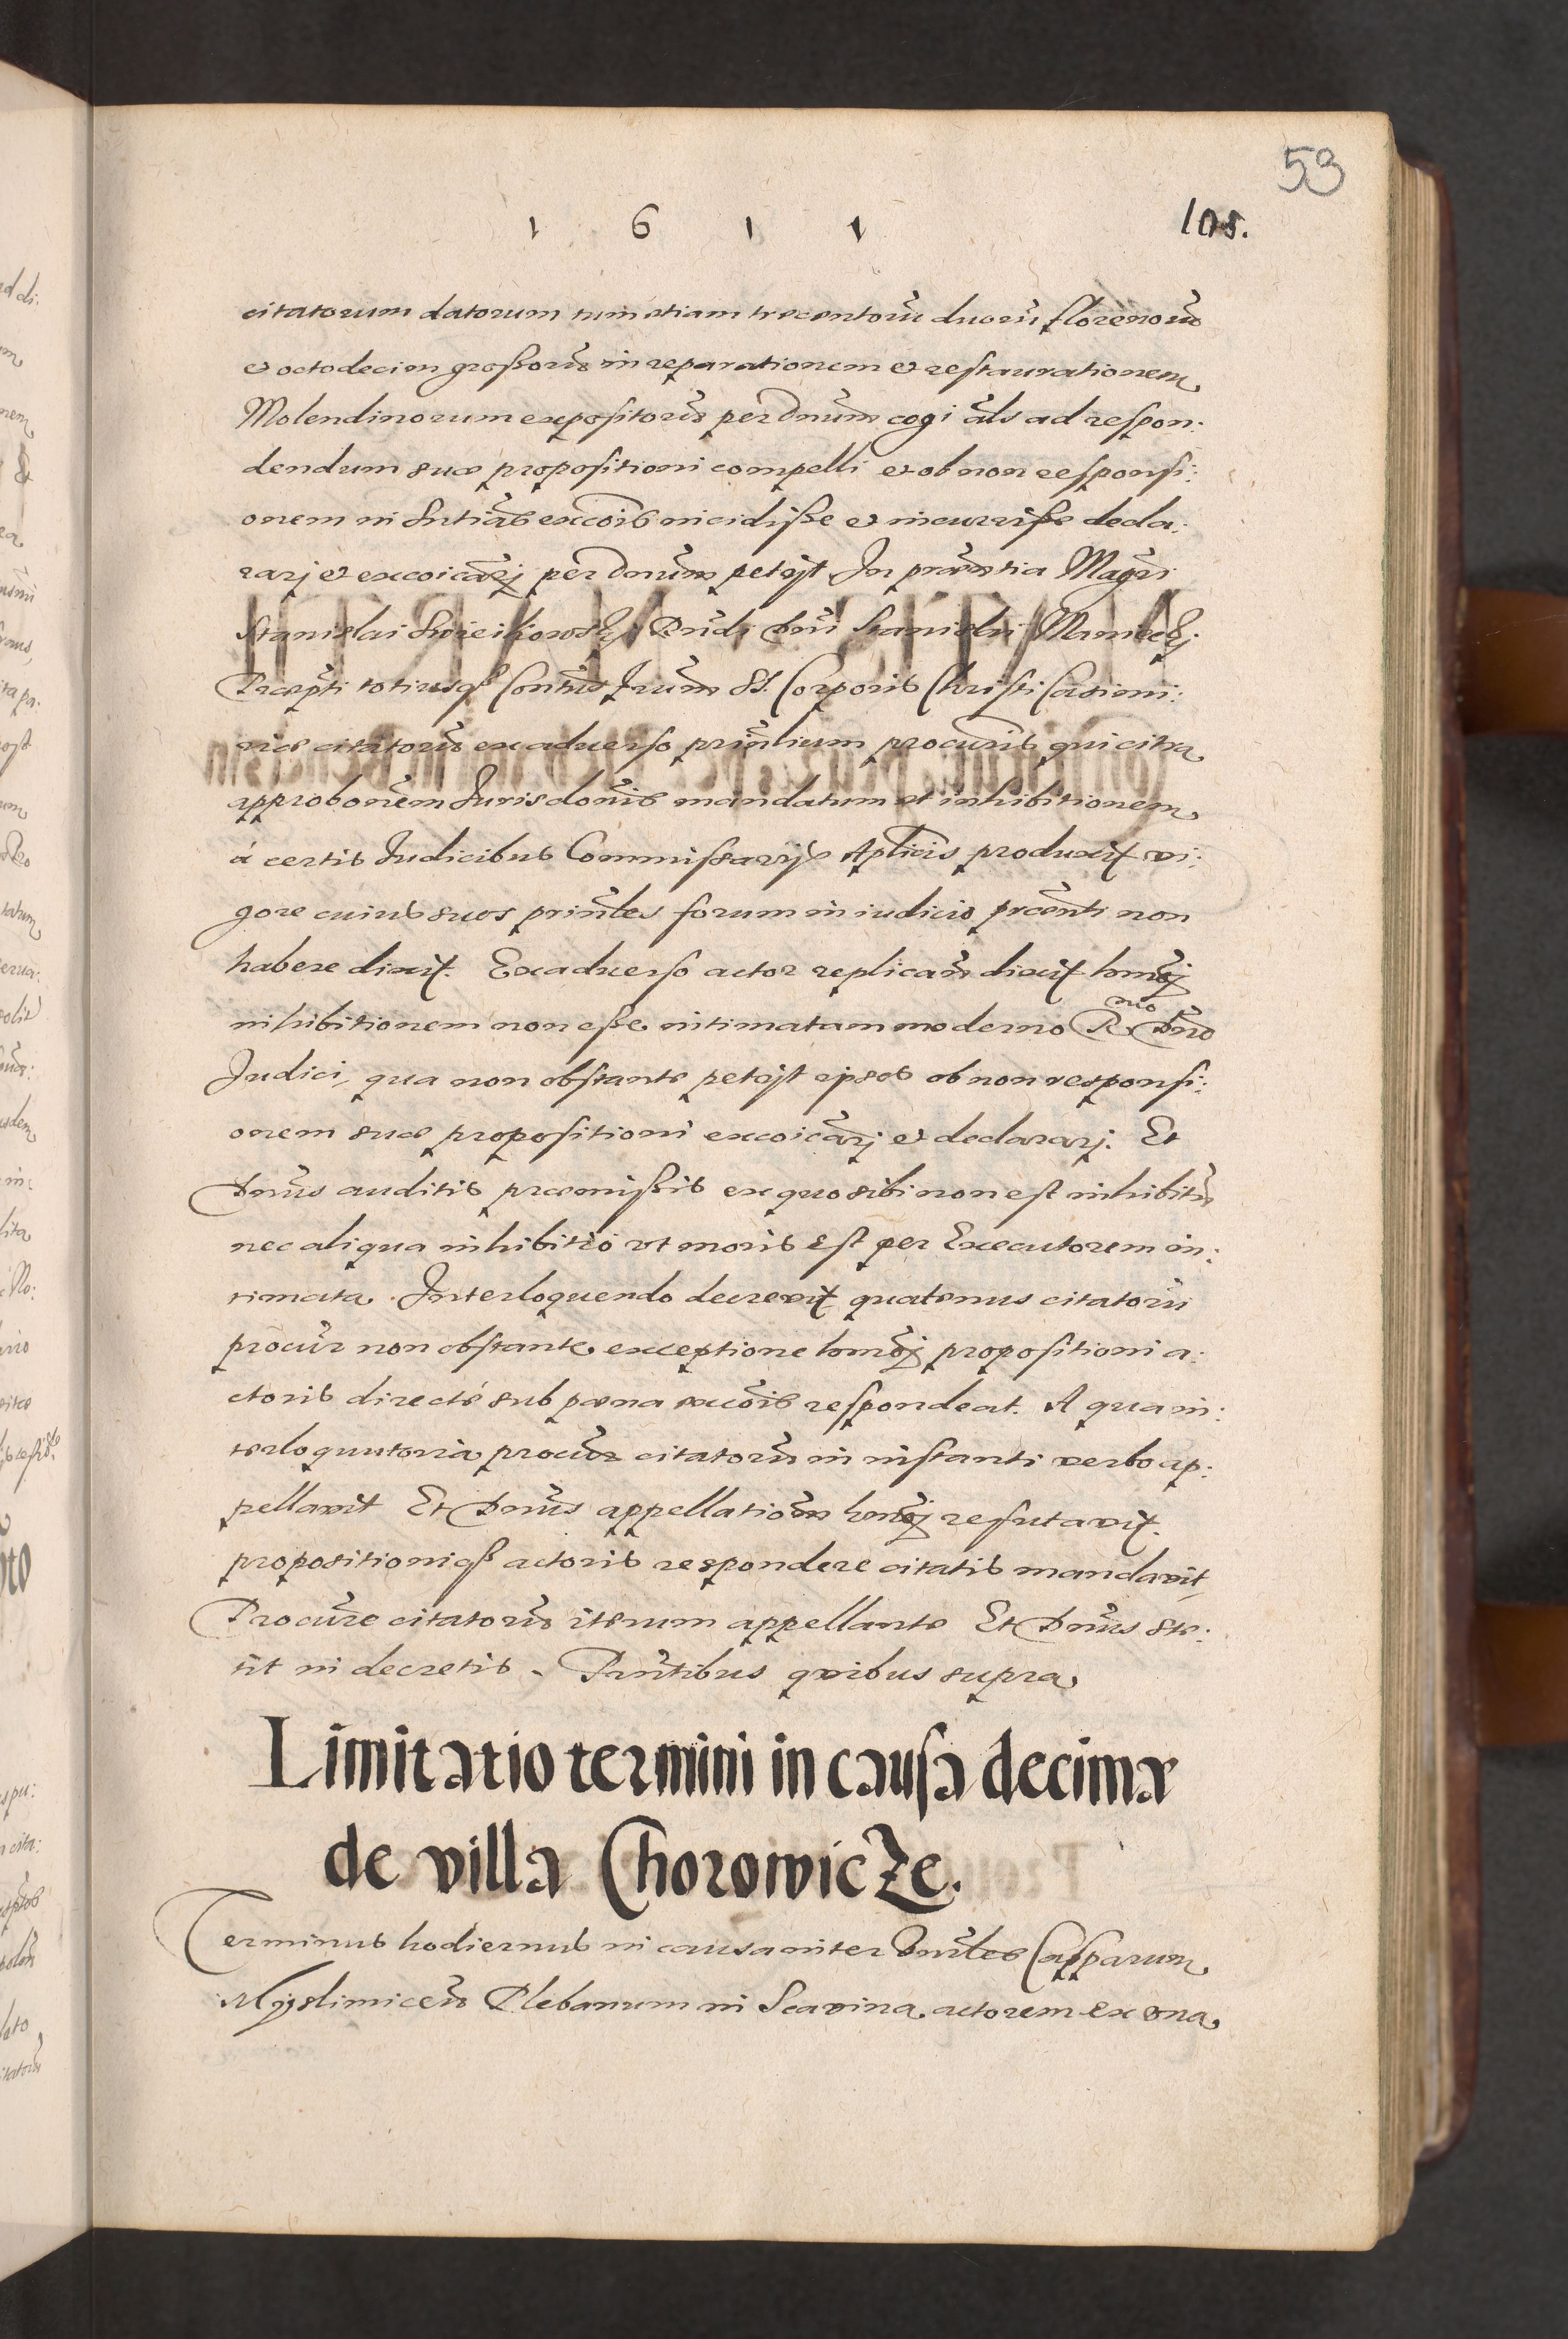 53
1 6 1 1
105.
citatorum datorum tum etiam trecentorũ duorũ florenorũ
et octodecim großorũ in reparationem et restaurationem
Molendinorum expositorũ per Dnũm cogi als ad respon:
dendum suæ propositioni compelli et ob non responsi:
onem in sntias excõis incidisse et incurrisse decla:
rarj et excoicãrj per Dnũm petijt In prñtia Magri
Stanislai Prudi Dni Stanislai
Præpti totiusq Contus frum SS. Corporis Christi Casimi:
riæ citatorũ ex adverso prinlium procuris qui citra
approbonem Jurisdonis mandatum et inhibitionem
à certis Judicibus Commissarijs Aplicis produxit vi:
gore cuius suos prinles forum in iudicio prñti non
habere dixit. Ex adverso actor replicañ dixit hmõj
inhibitionem non esse intimatam moderno R mo Dno
Judici, qua non obstante petijt ipsos ob non responsi:
onem suæ propositioni excoicãrj et declararj. Et
Dnũs auditis præmissis ex quo sibi non est inhibitũ
nec aliqua inhibitio ut moris est per Executorem in:
timata. Interloquendo decrevit quatenus citatorũ
procũr non obstante exceptione hmõj propositioni a:
ctoris directè sub pæna excõis respondeat. A qua in:
terloquutoria procũr citatorũ in instanti verbo ap:
pellavit Et Dnũs appellationem hmõj refutavit.
propositioniq actoris respondere citatis mandavit
Procũre citatorũ iterum appellante Et Dnũs ste:
tit in decretis. Prñtibus quibus supra
Limitatio termini in causa decimæ
de villa Chorowicze.
Terminus hodiernus in causa inter Dnũles Casparum
Myslimiceñ Plebanum in Scavina actorem ex una